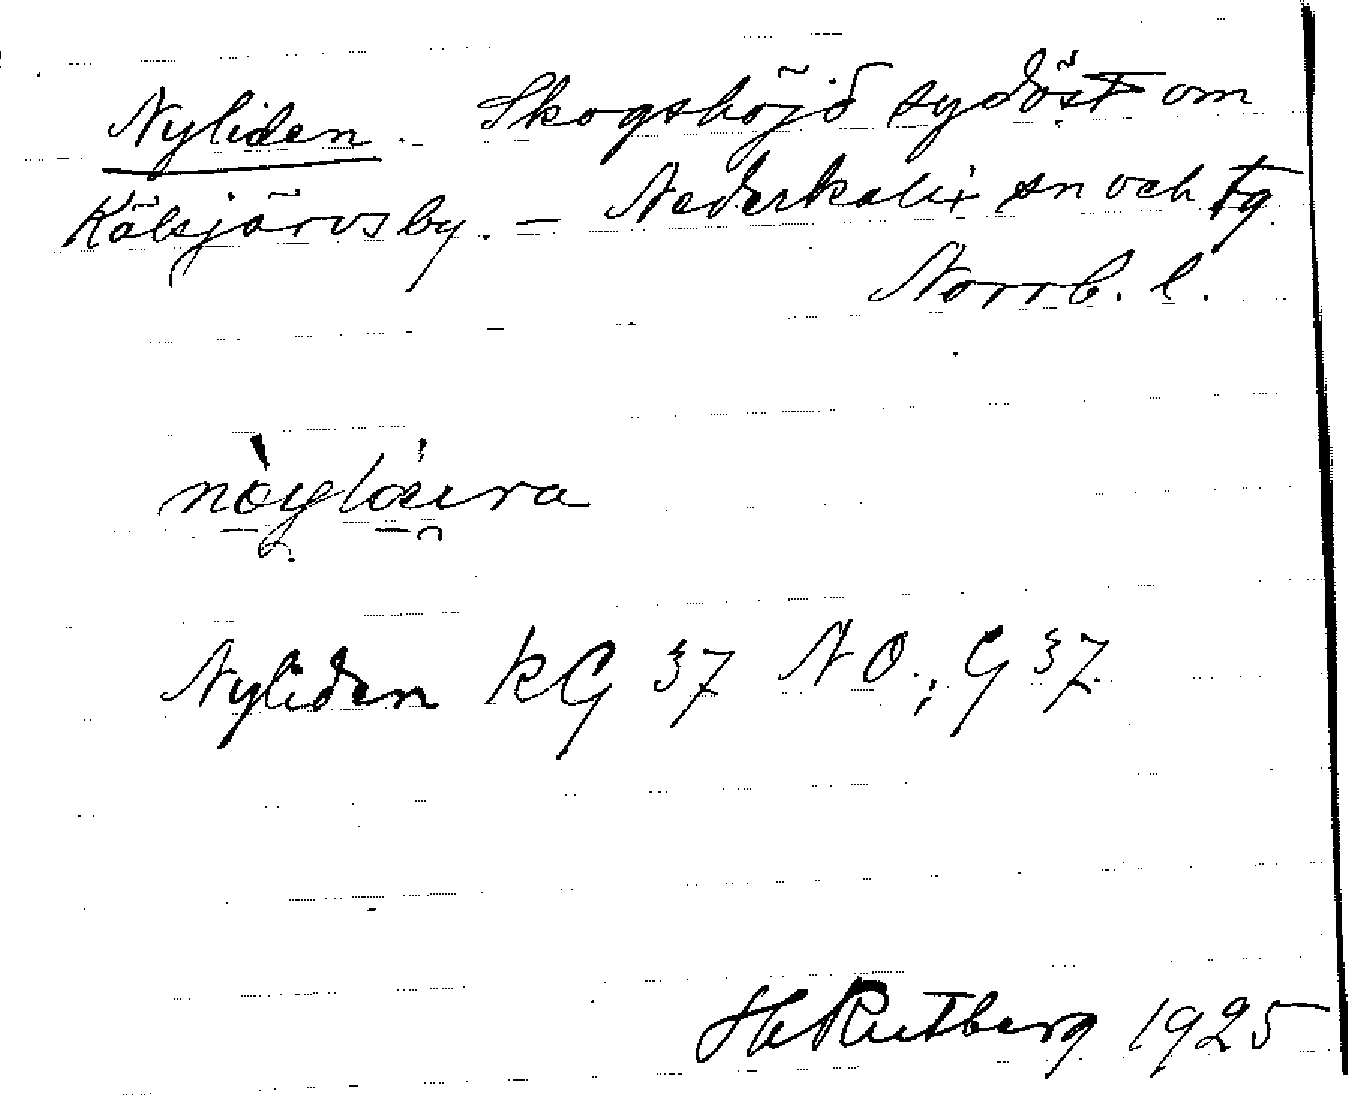 Nyliden. Skogshöjd sydöst om
Kälsjärvsby. – Nederkalix sn och tg
Norrb. l.
Nyliden KG 37 NO.; G 37.
H Rutberg 1925